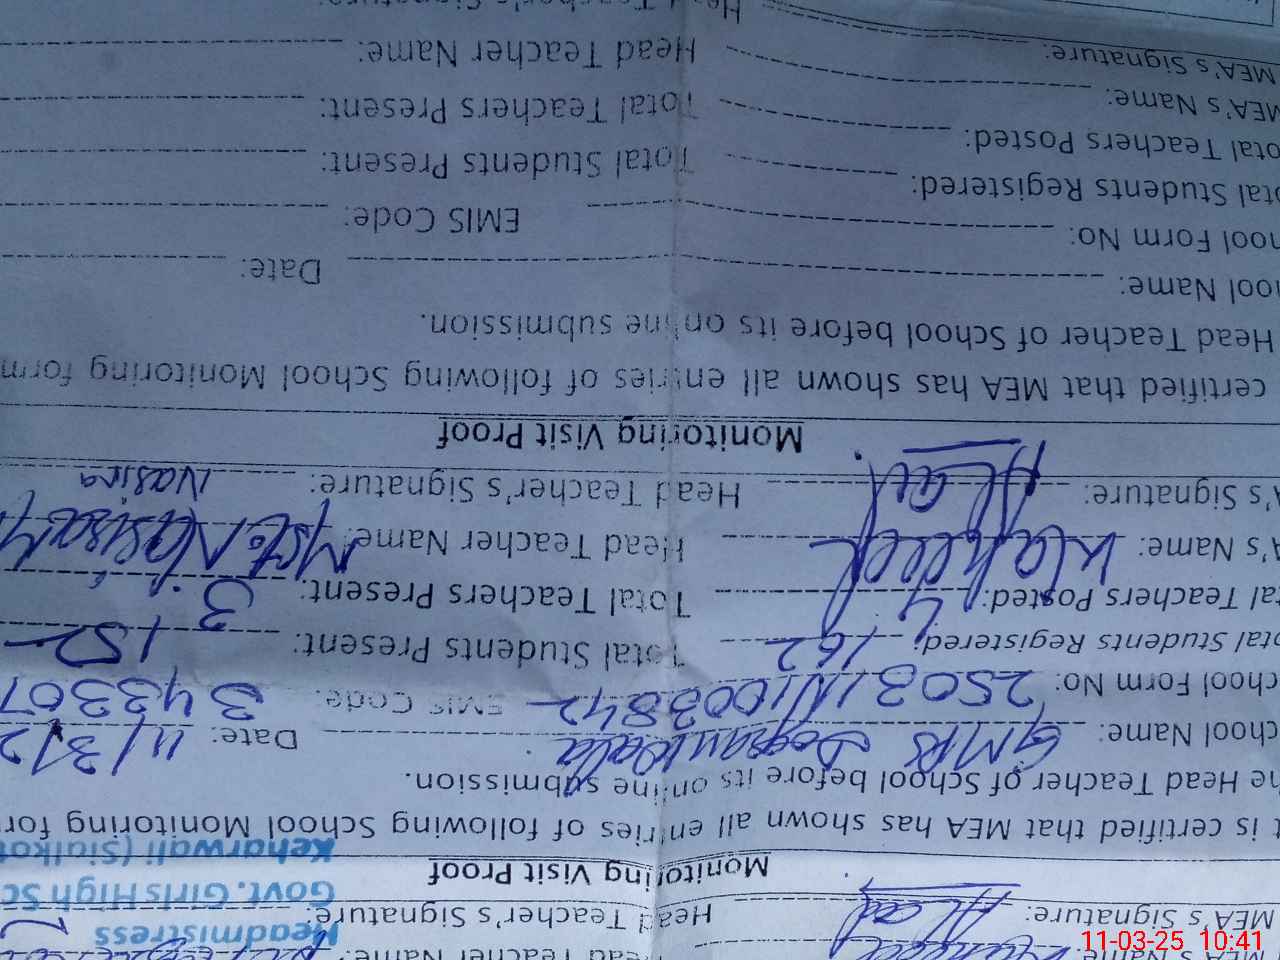 MEA's Name:
Head Teacher
Headmistress
MEA's Signature:
Head Teacher's Signature:
Govt. Girls High Sc
Monitoring Visit Proof
Keharwali (Sialkot
t is certified that MEA has shown all entries of following School Monitoring for
he Head Teacher of School before its online submission.
chool Name: GMPS Dograwala Date: 11/3/2
chool Form No: 2503INI1003842 EMIS Code: 343307
otal Students Registered: 162 Total Students Present: 152
tal Teachers Posted: 4 Total Teachers Present: 3
A's Name: Waheed Head Teacher Name: Mst. Nasira
A's Signature: Head Teacher's Signature: Nasira
Monitoring Visit Proof
certified that MEA has shown all entries of following School Monitoring form
Head Teacher of School before its online submission.
ool Name: Date:
hool Form No: EMIS Code:
otal Students Registered: Total Students Present:
otal Teachers Posted: Total Teachers Present:
MEA's Name: Head Teacher Name:
MEA's Signature: Head Teacher's Signature:
11-03-25 10:41